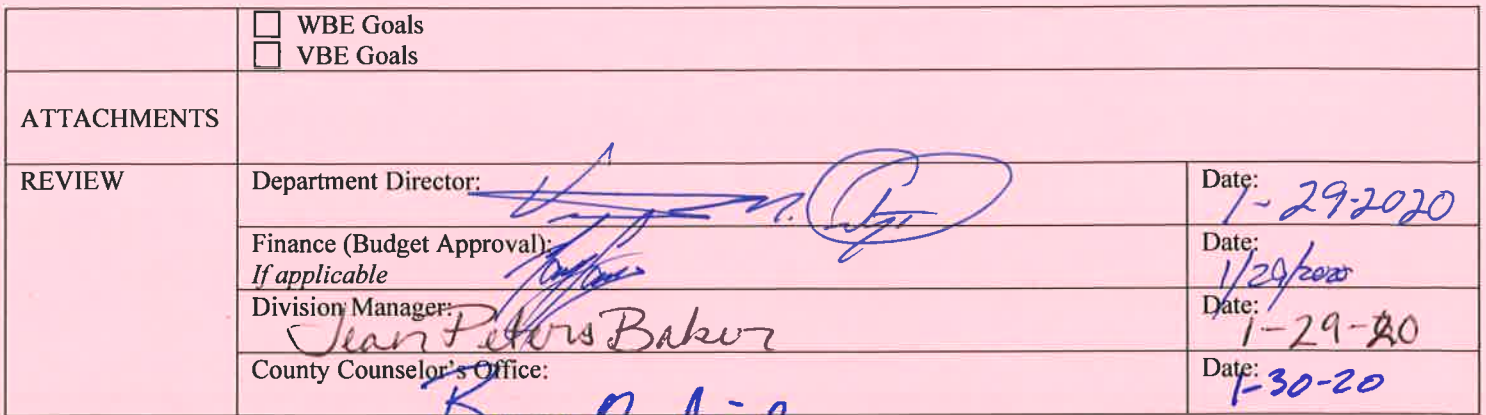 ☐ WBE Goals
☐ VBE Goals
ATTACHMENTS
REVIEW
Department Director:
Date: 1-29-2020
Finance (Budget Approval):
If applicable
Date: 1/29/2020
Division Manager: Jean Peters Baker
Date: 1-29-20
County Counselor's Office:
Date: 1-30-20